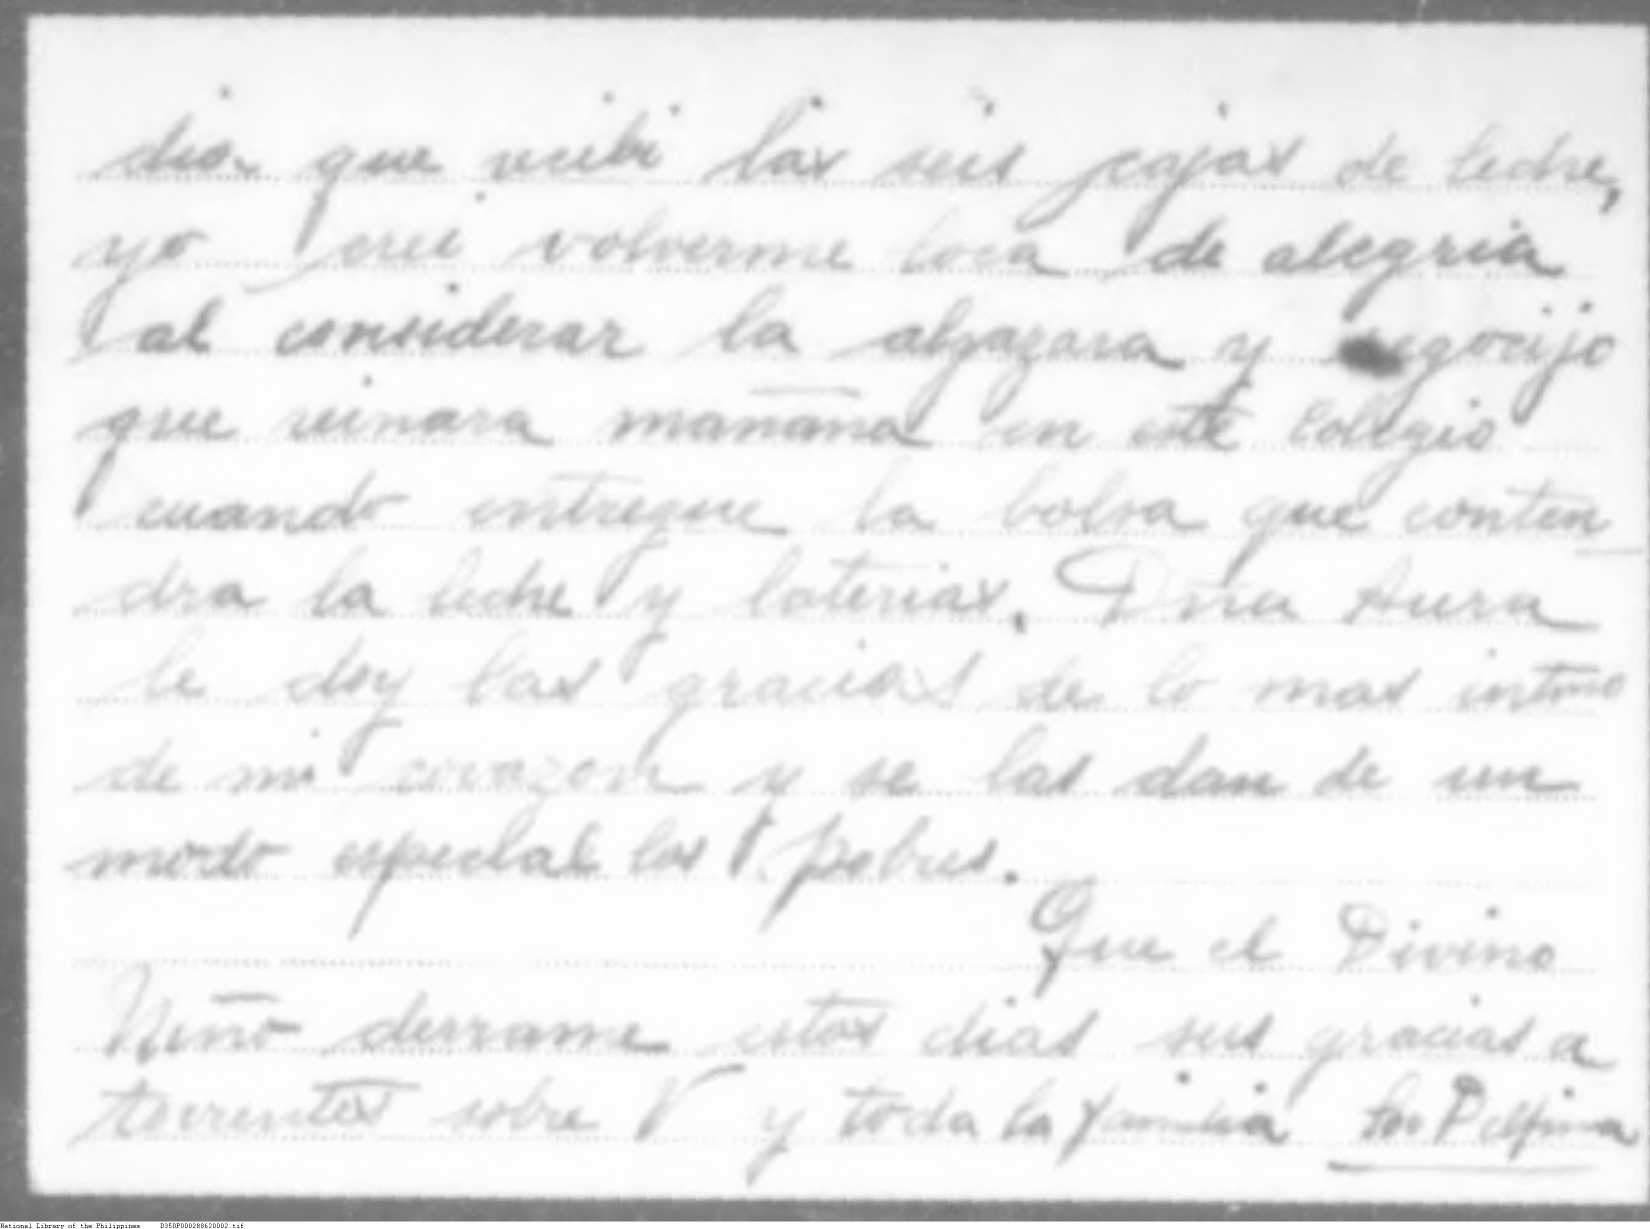 dia que recibi las seis cajas de leche,
yo crei volverme loca de alegria
al considerar la algazara y regocijo
que reinara mañana en este Colegio
cuando entregue la bolsa que conten
dra la leche y loterias. Dña Aura
le doy las gracias de lo mas intimo
de mi corazon y se las dan de un
modo especial los pobres.
Que el Divino
Niño derrame estos dias sus gracias a
torrentes sobre V y toda la familia Sor Delfina
National Library of the Philippines D350P000288620002.tif